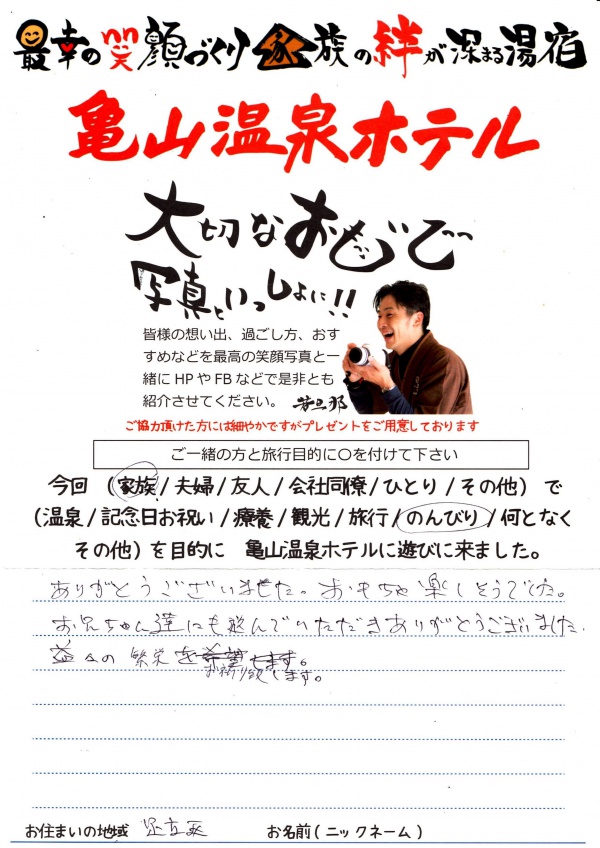 最幸の笑顔づくり 家族の絆が深まる湯宿
亀山温泉ホテル
大切なおもいで
写真といっしょに!!
皆様の想い出、過ごし方、おす
すめなどを最高の笑顔写真と一
緒に HP や FB などで是非とも
紹介させてください。 若旦那
ご協力頂けた方には細やかですがプレゼントをご用意しております
ご一緒の方と旅行目的に〇を付けて下さい
今回 (家族/夫婦/友人/会社同僚/ひとり/その他) で
(温泉/記念日お祝い/療養/観光/旅行/のんびり/何となく
その他) を目的に 亀山温泉ホテルに遊びに来ました。
ありがとうございました。おもちゃ楽しそうでした。
お兄ちゃん達にも遊んでいただきありがとうございました
益々の繁栄を希望します。
お祈り致します。
お住まいの地域 足立区 お名前(ニックネーム)